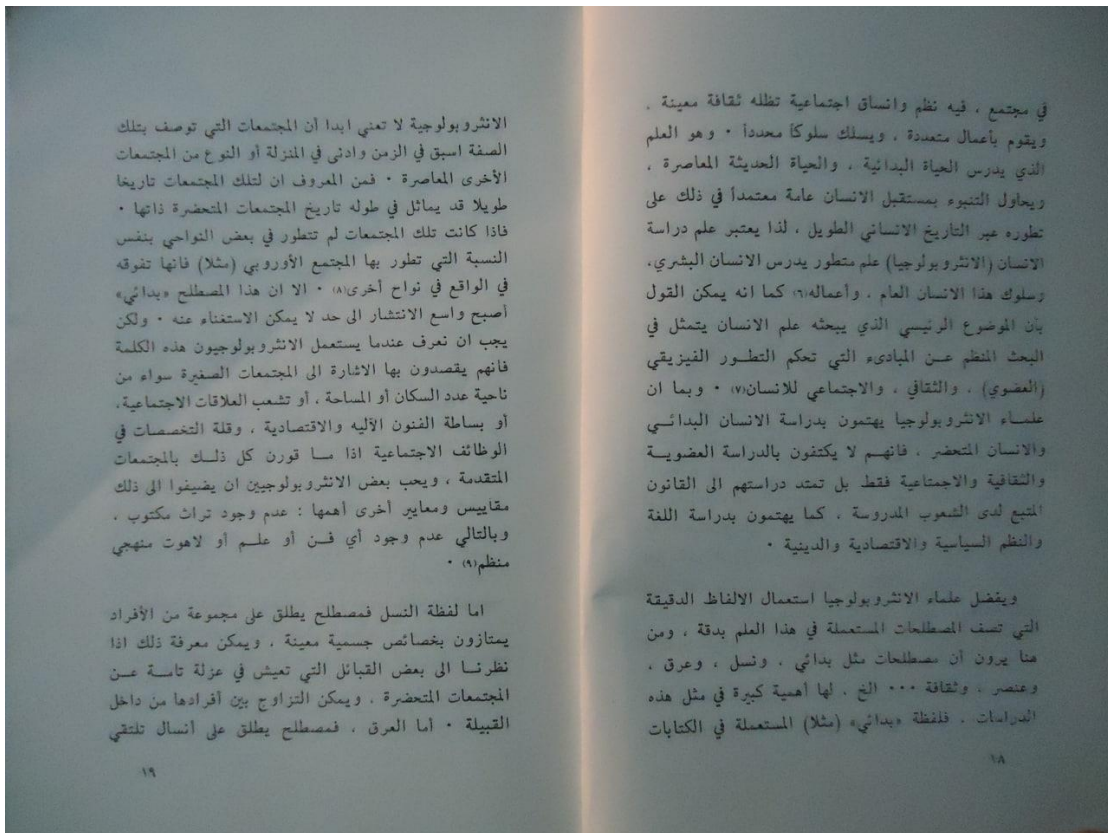 في مجتمع ، فيه نظم وانساق اجتماعية تظله ثقافة معينة .
ويقوم بأعمال متعددة ، ويسلك سلوكاً محدداً ٠ وهو العلم
الذي يدرس الحياة البدائية ، والحياة الحديثة المعاصرة ،
ويحاول التنبوء بمستقبل الانسان عامة معتمداً في ذلك على
تطوره عبر التاريخ الانساني الطويل ، لذا يعتبر علم دراسة
الانسان (الانثروبولوجيا) علم متطور يدرس الانسان البشري،
وسلوك هذا الانسان العام ، وأعماله(٦) كما انه يمكن القول
بأن الموضوع الرئيسي الذي يبحثه علم الانسان يتمثل في
البحث المنظم عـن المبادىء التي تحكم التطـور الفيزيقي
(العضوي) ، والثقافي ، والاجتماعي للانسان(٧) ٠ وبما ان
علمـاء الانثروبولوجيا يهتمون بدراسة الانسان البدائـي
والانسان المتحضر ، فانهـم لا يكتفون بالدراسة العضويـة
والثقافية والاجمتاعية فقط بل تمتد دراستهم الى القانون
المتبع لدى الشعوب المدروسة ، كما يهتمون بدراسة اللغة
والنظم السياسية والاقتصادية والدينية ٠
ويفضل علماء الانثروبولوجيا استعمال الالفاظ الدقيقة
التي تصف المصطلحات المستعملة في هذا العلم بدقة ، ومن
هنا يرون أن مصطلحات مثل بدائي ، ونسل ، وعرق ،
وعنصر ، وثقافة ٠٠٠ الخ ، لها أهمية كبيرة في مثل هذه
الدراسات ، فلفظة «بدائي» (مثلا) المستعملة في الكتابات
١٨
الانثروبولوجية لا تعني ابدا أن المجتمعات التي توصف بتلك
الصفة اسبق في الزمن وادنى في المنزلة أو النوع من المجتمعات
الأخرى المعاصرة ٠ فمن المعروف ان لتلك المجتمعات تاريخا
طويلا قد يماثل في طوله تاريخ المجتمعات المتحضرة ذاتها ٠
فاذا كانت تلك المجتمعات لم تتطور في بعض النواحي بنفس
النسبة التي تطور بها المجتمع الأوروبي (مثلا) فانها تفوقه
في الواقع في نواح أخرى(٨) ٠ الا ان هذا المصطلح «بدائي»
أصبح واسع الانتشار الى حد لا يمكن الاستغناء عنه ٠ ولكن
يجب ان نعرف عندما يستعمل الانثروبولوجيون هذه الكلمة
فانهم يقصدون بها الاشارة الى المجتمعات الصغيرة سواء من
ناحية عدد السكان أو المساحة ، أو تشعب العلاقات الاجتماعية،
أو بساطة الفنون الآليه والاقتصادية ، وقلة التخصصات في
الوظائف الاجتماعية اذا مـا قورن كل ذلـك بالمجتمعات
المتقدمة ، ويحب بعض الانثروبولوجيين ان يضيفوا الى ذلك
مقاييس ومعايير أخرى أهمها : عدم وجود تراث مكتوب ،
وبالتالي عدم وجود أي فـن أو علـم أو لاهوت منهجي
منظم(٩) ٠
اما لفظة النسل فمصطلح يطلق على مجموعة من الأفراد
يمتازون بخصائص جسمية معينة ، ويمكن معرفة ذلك اذا
نظرنـا الى بعض القبائل التي تعيش في عزلة تامـة عـن
المجتمعات المتحضرة ، ويمكن التزاوج بين أفرادها من داخل
القبيلة ٠ أما العرق ، فمصطلح يطلق على أنسال تلتقي
١٩